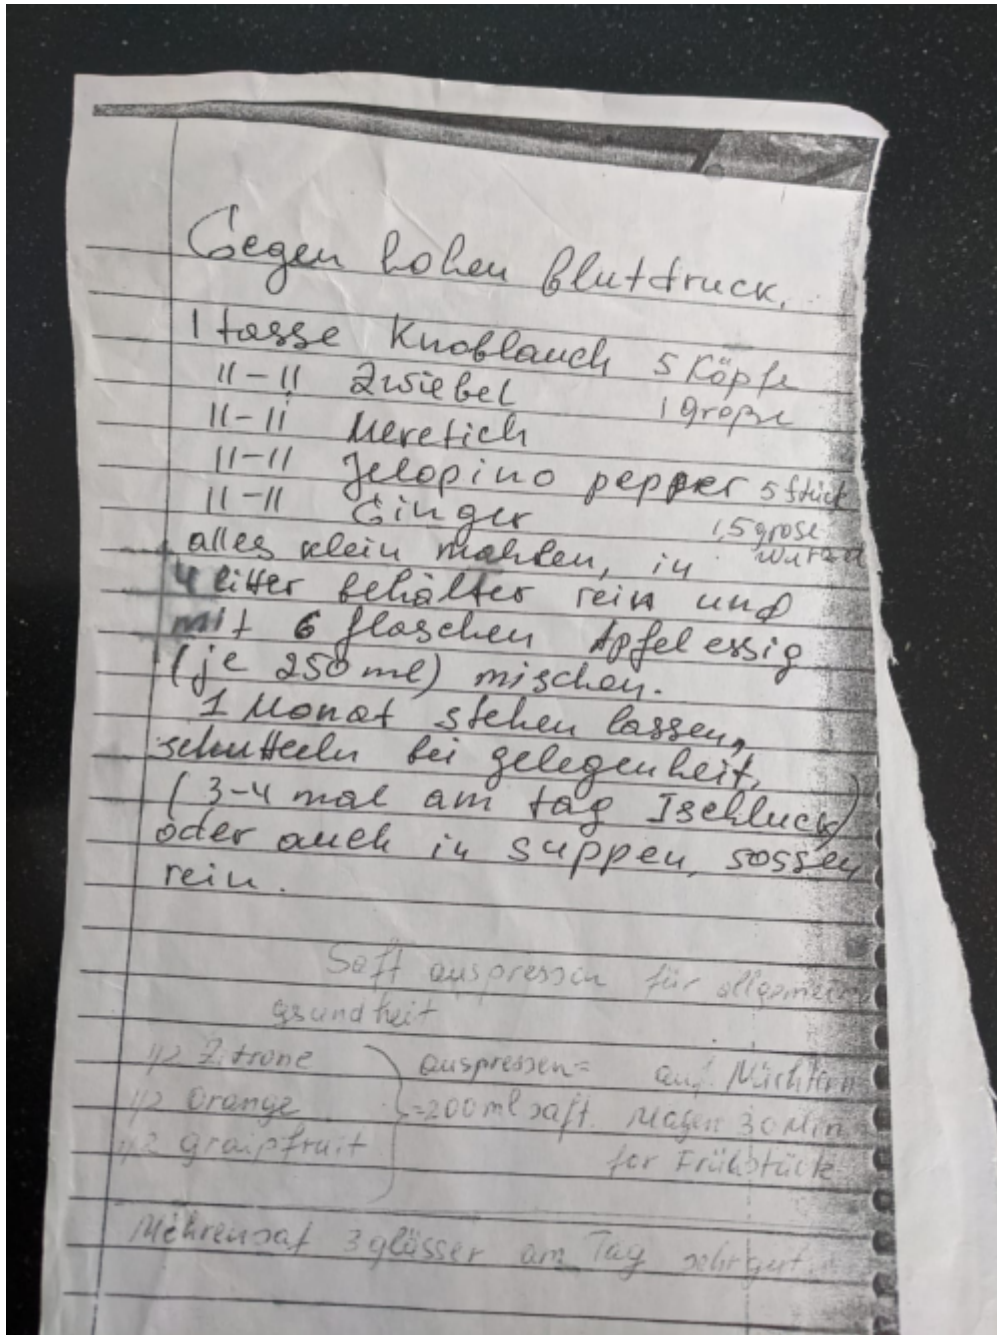 Gegen hohen Blutdruck.
1 tasse Knoblauch 5 Köpfe
11-11 Zwiebel 1 große
11-11 Meretich
11-11 Jelopino pepper 5 stück
11-11 Ginger 1,5 grose wurzel
alles klein mahlen, in
4 litter behälter rein und
mit 6 flaschen Apfel essig
(je 250 ml) mischen.
1 Monat stehen lassen,
schutteln bei gelegenheit,
(3-4 mal am tag 1schluck)
oder auch in suppen, sossen
rein.
Saft auspressen für allgemein
gsundheit
1/2 Zitrone auspressen= auf Nüchtern
1/2 Orange =200ml saft. Magen 30 Min
1/2 graipfruit for Frühstück
Mehrensaf 3 glässer am Tag sehr gut.